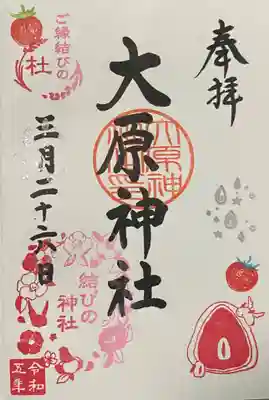 奉拝
大原神社
ご縁結びの
社
三月二十六日
結びの
神社
令和
五年